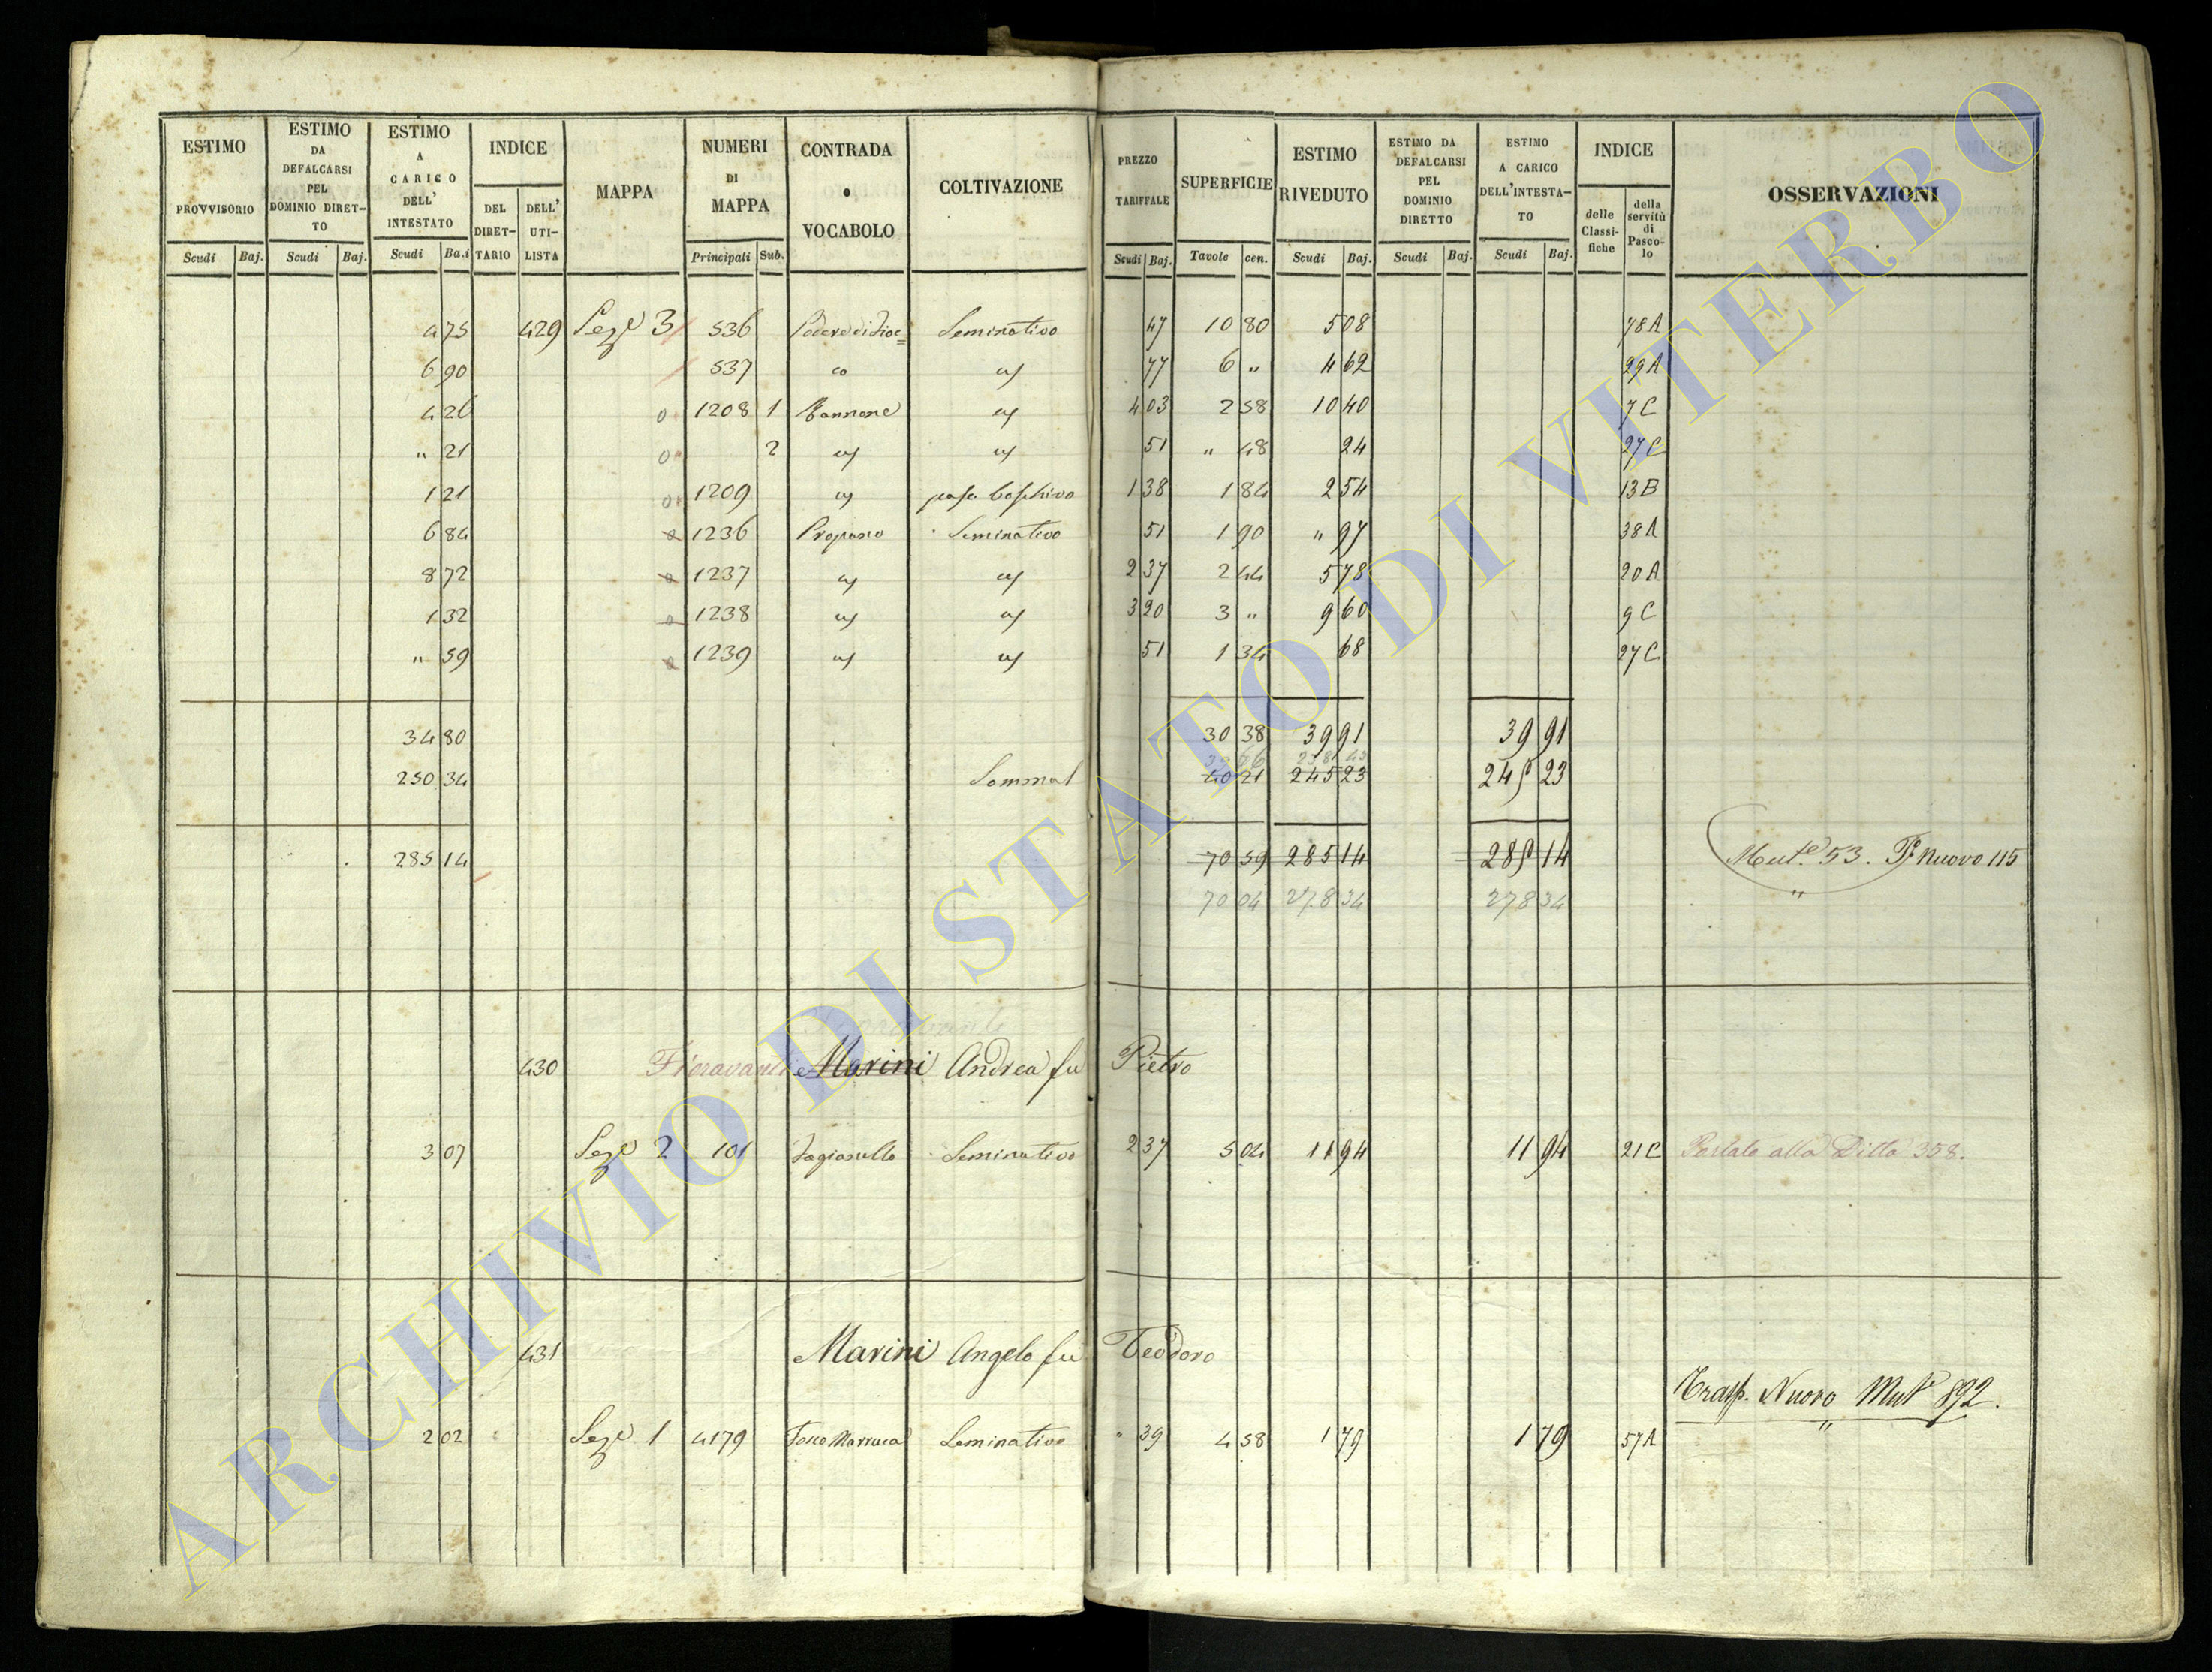 ESTIMO PROVVISORIO | ESTIMO DA DEFALCARSI PEL DOMINIO DIRET-TO | ESTIMO A CARICO DELL' INTESTATO | INDICE | MAPPA | NUMERI DI MAPPA | CONTRADA o VOCABOLO | COLTIVAZIONE | PREZZO TARIFFALE | SUPERFICIE | ESTIMO RIVEDUTO | ESTIMO DA DEFALCARSI PEL DOMINIO DIRETTO | ESTIMO A CARICO DELL'INTESTA-TO | INDICE | OSSERVAZIONI
DEL DIRET-TARIO | DELL' UTI-LISTA | delle Classi-fiche | della servitù di Pasco-lo
Scudi | Baj. | Scudi | Baj. | Scudi | Ba.i | Principali | Sub. | Scudi | Baj. | Tavole | cen. | Scudi | Baj. | Scudi | Baj. | Scudi | Baj.
4 75 | 429 | Seze 3 | 536 | Seminativo | 47 | 10 80 | 5 08 | 78 A
6 90 | 537 | 77 | 6 " | 4 62 | 29 A
4 26 | 0 | 1208 | 1 | 4 03 | 2 58 | 10 40 | 7 C
" 21 | 0 | 2 | 51 | " 48 | 24 | 27 C
1 21 | 0 | 1209 | 1 38 | 1 84 | 2 54 | 13 B
6 84 | 0 | 1236 | Seminativo | 51 | 1 90 | " 97 | 38 A
8 72 | 0 | 1237 | 2 37 | 2 44 | 5 78 | 20 A
1 32 | 0 | 1238 | 3 20 | 3 " | 9 60 | 9 C
" 59 | 0 | 1239 | 51 | 1 34 | 68 | 27 C
34 80 | 30 38 | 39 91 | 39 91
250 34 | 40 21 | 245 23 | 245 23
285 14 | 70 59 | 285 14 | 285 14 | Mut.e 53. Nuovo 115
70 04 | 278 34 | 278 34 | "
430 | Fioravanti Marini Andrea fu Pietro
3 07 | Seze 2 | 101 | Seminativo | 2 37 | 5 04 | 11 94 | 11 94 | 21 C | Portato alla Ditta 358.
431 | Marini Angelo fu Teodoro
Trasp. Nuovo Mute 892.
2 02 | Seze 1 | 4179 | Fosco Marruca | Seminativo | " 39 | 4 58 | 1 79 | 1 79 | 57 A | "
ARCHIVIO DI STATO DI VITERBO